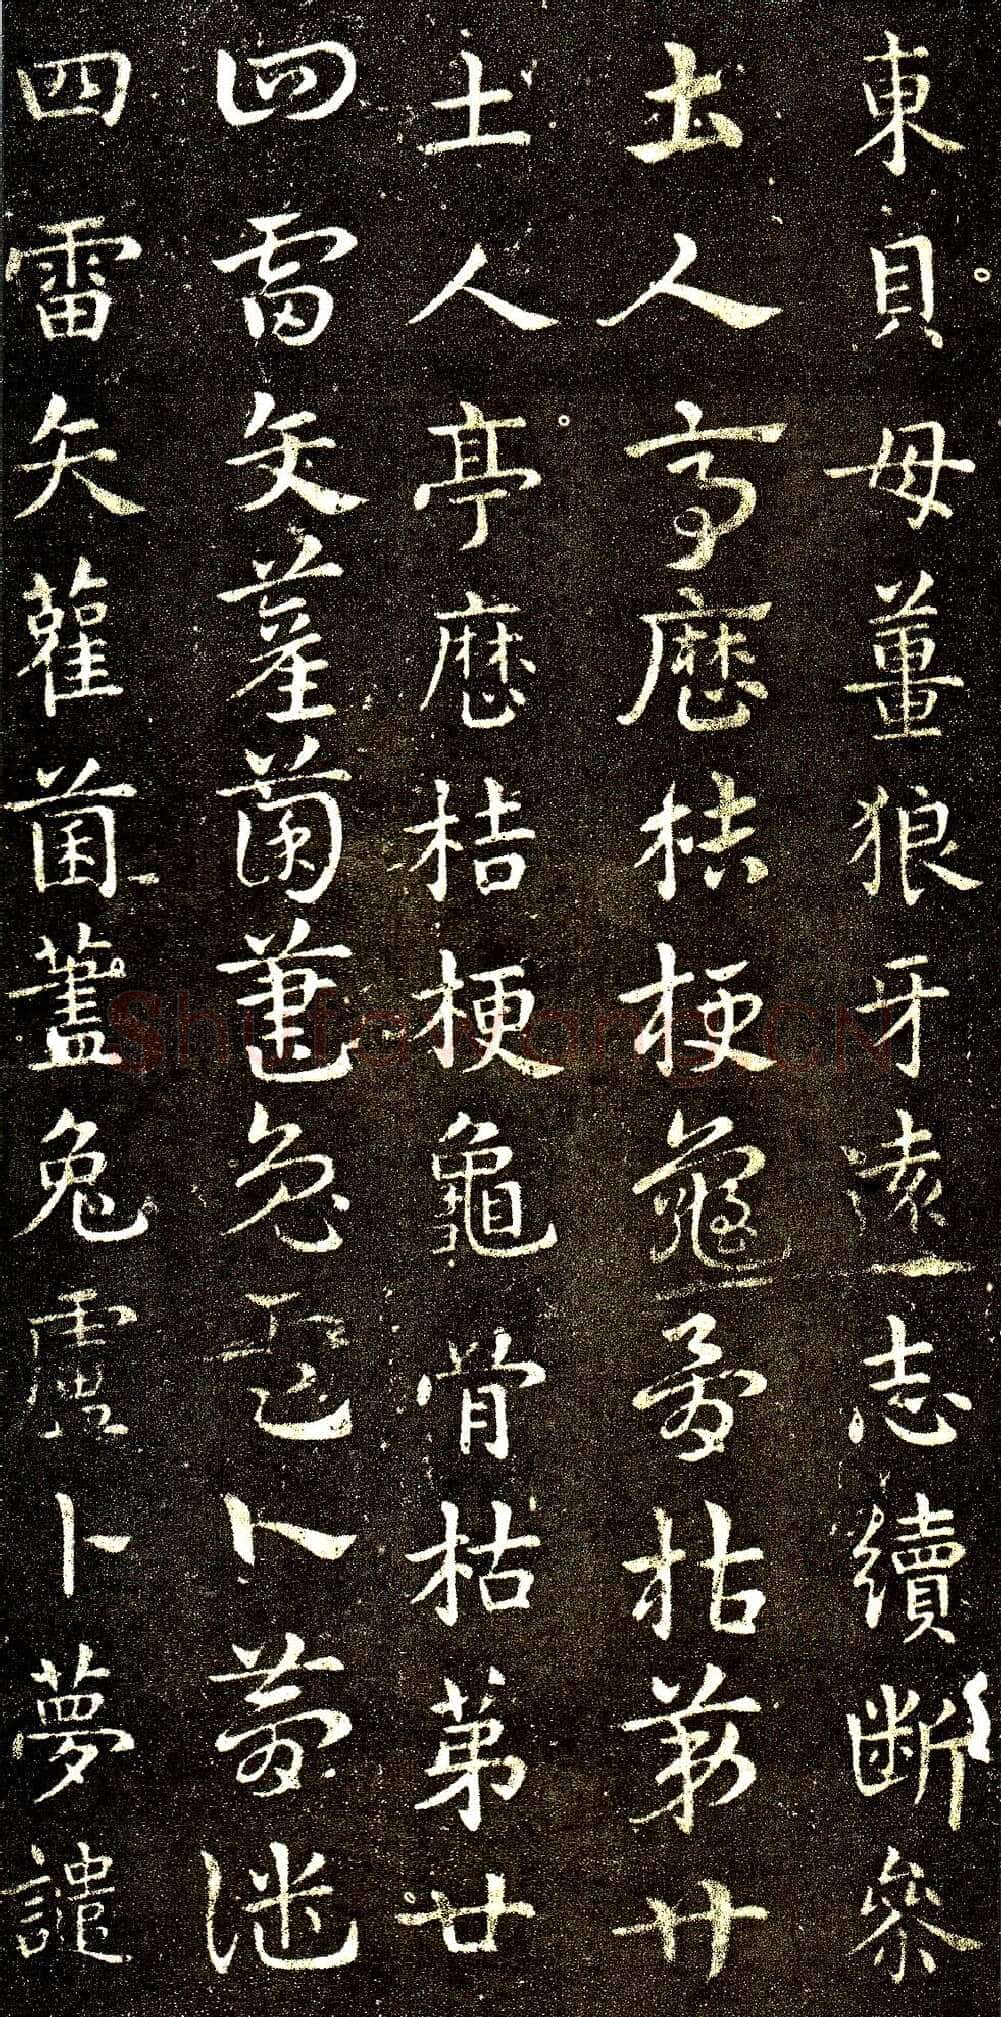 東貝母薑狼牙遠志續斷參
土人亭歷桔梗龜骨枯第廿
土人亭歷桔梗龜骨枯第廿
四雷矢雚菌藎兔盧卜夢譴
四雷矢雚菌藎兔盧卜夢譴
ShufaWang.CN